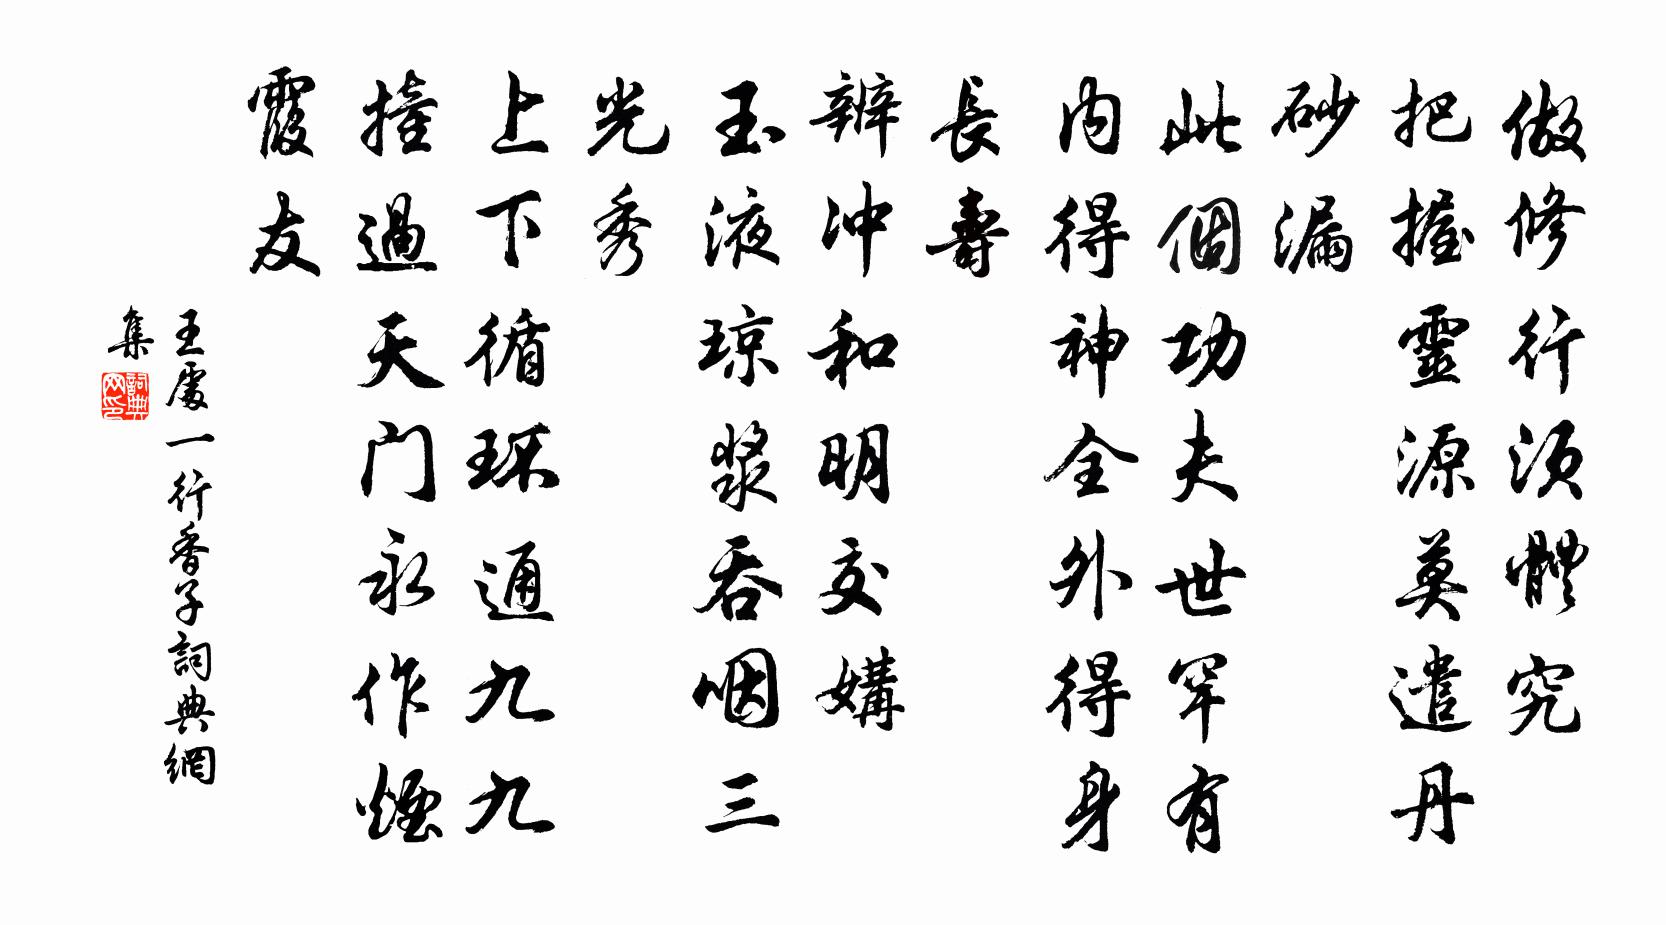 做修行須體究
把握靈源莫遣丹
砂漏
此個功夫世罕有
內得神全外得身
長壽
辨沖和明交媾
玉液琼漿吞咽三
光秀
上下循环通九九
撞過天门永作煙
霞友
王處一行香子詞典網
集
詞典网印